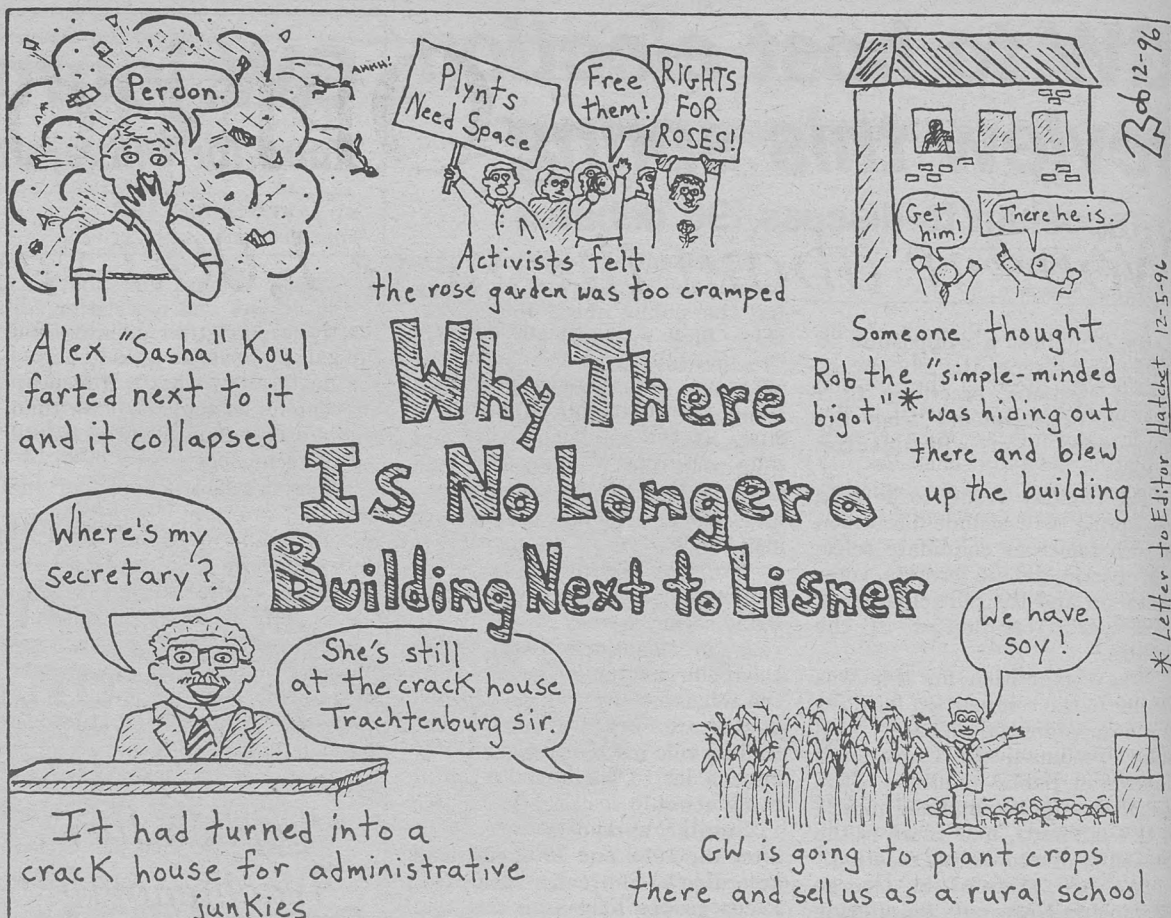 Perdon.
AHHH!
Alex "Sasha" Koul
farted next to it
and it collapsed
Plynts
Need Space
Free
them!
RIGHTS
FOR
ROSES!
Activists felt
the rose garden was too cramped
Get
him!
There he is.
Someone thought
Rob the "simple-minded
bigot"* was hiding out
there and blew
up the building
Why There
Is No Longer a
Building Next to Lisner
Where's my
secretary?
She's still
at the crack house
Trachtenburg sir.
It had turned into a
crack house for administrative
junkies
We have
soy!
GW is going to plant crops
there and sell us as a rural school
Bob 12-96
*Letter to Editor Hatchet 12-5-96